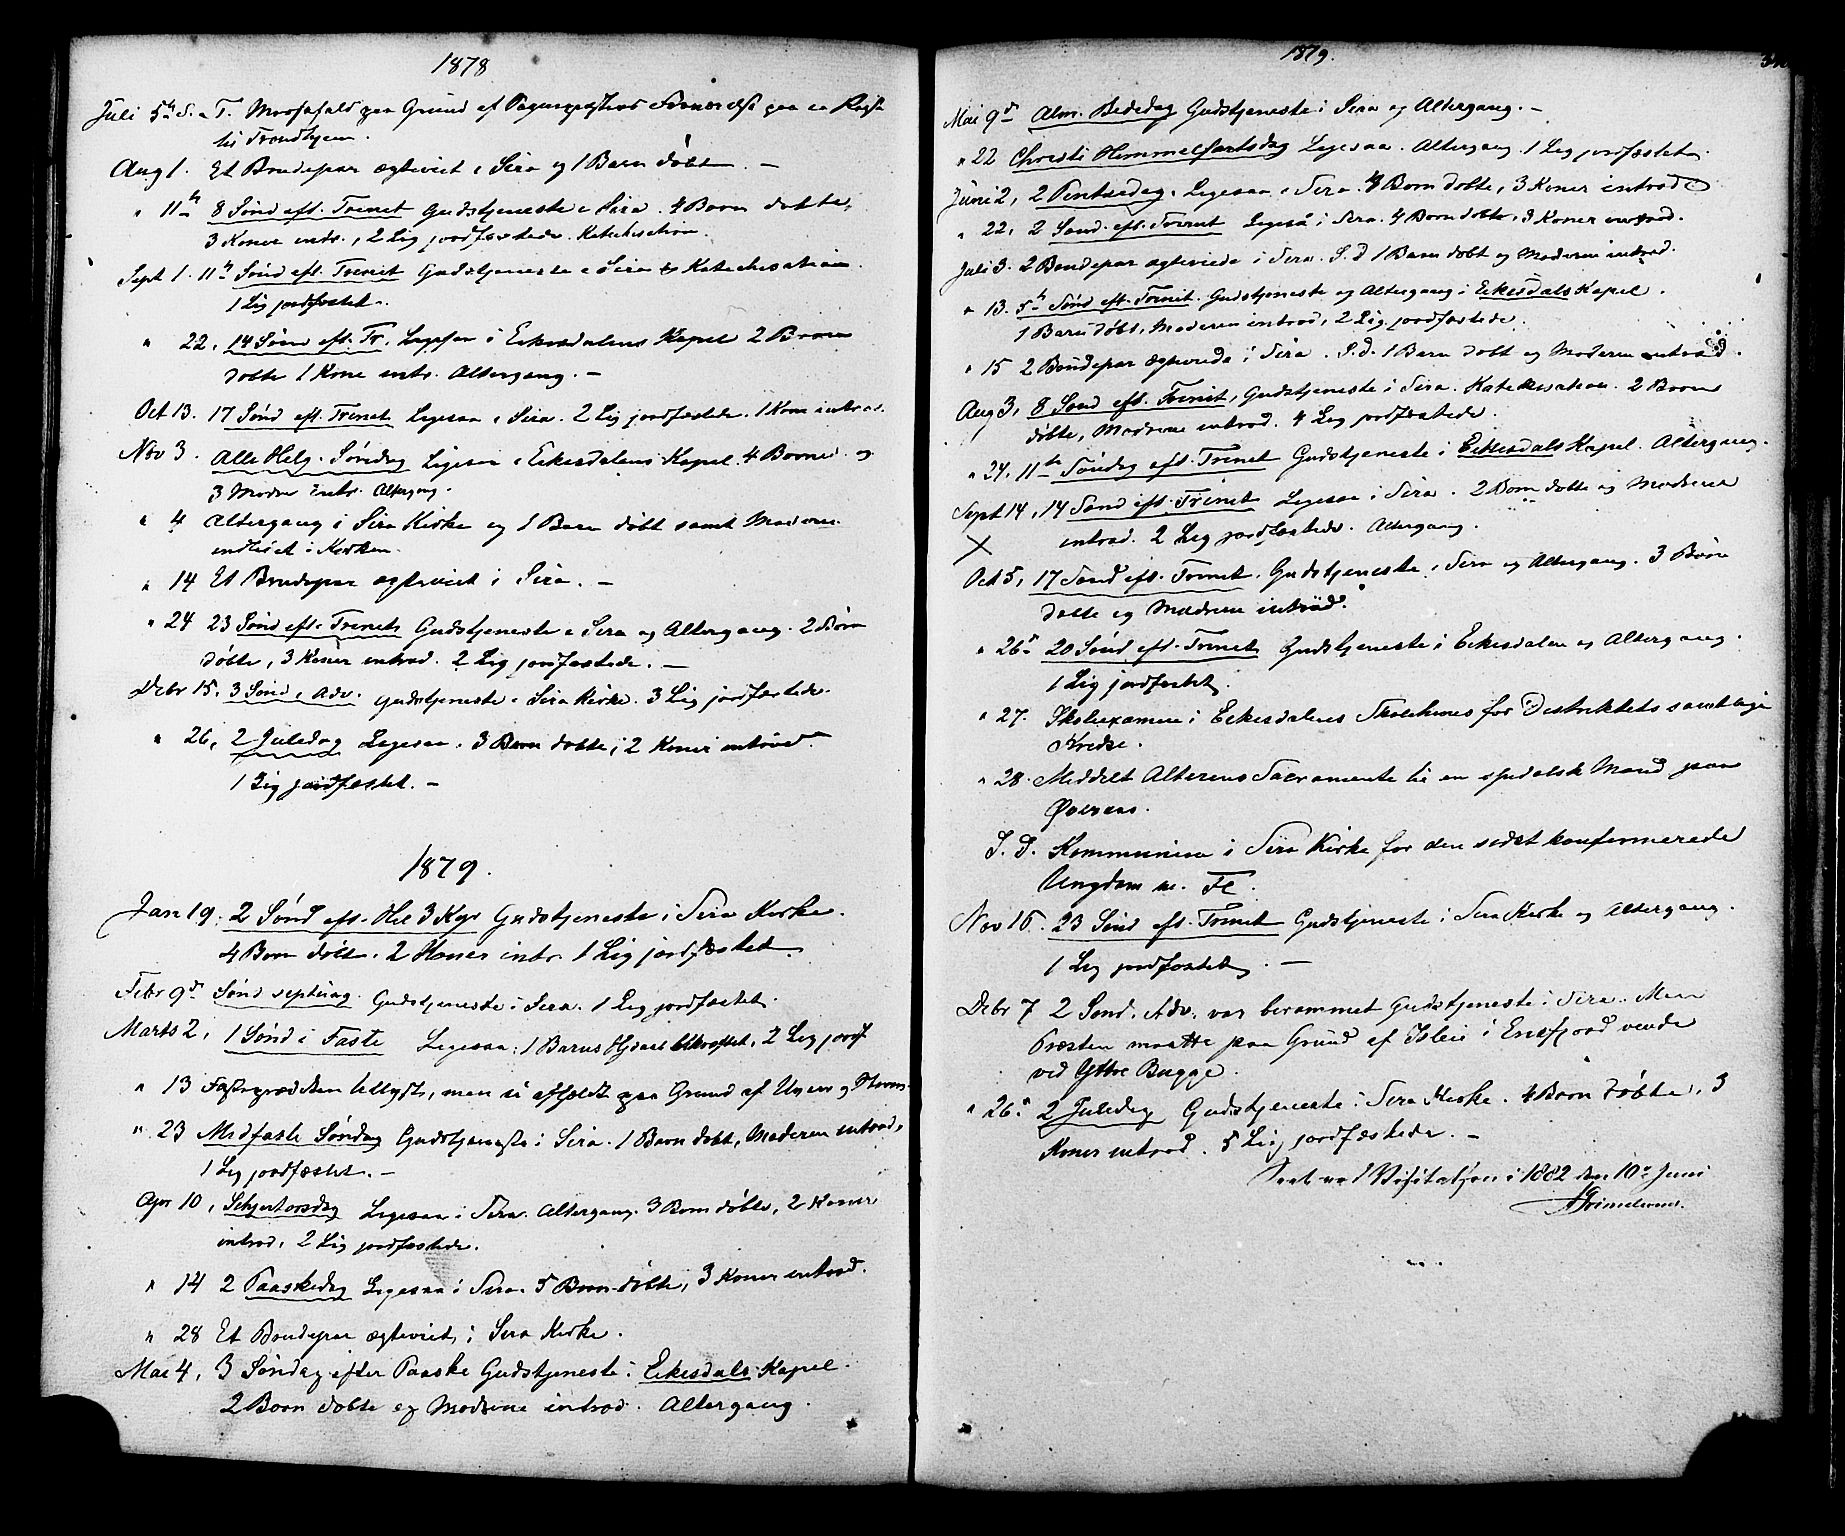 1878
Juli 5te S. e. T. Messefald paa Grund af Sognepræstens Fraværelse paa en Rejse
til Trondhjem.
Aug 1. Et Brudepar ægteviet i Sira og 1 Barn døbt. –
" 11te 8 Sønd eft. Trinit Gudstjeneste i Sira. 4 Børn døbte,
3 Koner indl., 2 Lig jordfæstede. Katekisation.
Sept 1. 11te Sønd eft. Trinit Gudstjeneste i Sira & Katechisation.
1 Lig jordfæstet.
" 22, 14 Sønd eft. Tr. Ligesaa i Eikisdalens Kapel 2 Børn
døbte 1 Kone intr. Altergang. –
Oct 13. 17 Sønd eft. Trinit Ligesaa i Sira. 2 Lig jordfæstede. 1 Kone introd.
Nov 3. Alle Helg. Søndag Ligesaa i Eikisdalens Kapel. 4 Børn og
3 Mødre intr. Altergang.
" 4 Altergang i Sira Kirke og 1 Barn døbt samt Moderen
indledet i Kirken.
" 14 Et Brudepar ægteviet i Sira. –
" 24 23 Sønd eft. Trinit Gudstjeneste i Sira og Altergang. 2 Børn
døbte, 3 Koner introd. 2 Lig jordfæstede. –
Debr 15. 3 Sønd i Adv. Gudstjeneste i Sira Kirke. 3 Lig jordfæstede.
" 26, 2 Juledag Ligesaa. 3 Børn døbte, 2 Koner introd.
1 Lig jordfæstet. –
1879.
Jan 19. 2 Sønd eft. Hel 3 Kgr Gudstjeneste i Sira Kirke.
4 Børn døbt. 2 Koner intr. 1 Lig jordfæstet.
Febr 9de Sønd septuag. Gudstjeneste i Sira. 1 Lig jordfæstet.
Marts 2, 1 Sønd i Faste Ligesaa. 1 Barns Hjdaab bekræftet, 2 Lig jordf
" 13 Fasteprædiken tillyst, men ei afholdt paa Grund af Uveir og Storm.
" 23 Midfaste Søndag Gudstjeneste i Sira. 1 Barn døbt, Moderen introd,
1 Lig jordfæstet. –
Apr 10, Skjertorsdag Ligesaa i Sira. Altergang. 3 Børn døbte, 2 Koner
introd. 2 Lig jordfæstede.
" 14 2 Paaskedag Ligesaa i Sira. 5 Børn døbte, 3 Koner introd.
" 28 Et Brudepar ægteviet i Sira Kirke.
Mai 4, 3 Søndag efter Paaske Gudstjeneste i Eikisdals Kapel.
2 Børn døbte og Mødrene introd. Altergang.
1879.
Mai 9de Alm. Bededag Gudstjeneste i Sira og Altergang. –
" 22 Christi Himmelfartsdag Ligesaa. Altergang. 1 Lig jordfæstet.
Juni 2, 2 Pintsedag. Ligesaa i Sira. 4 Børn døbte, 3 Koner introd
" 22, 2 Sønd. eft. Trinit Ligeså i Sira. 4 Børn døbte, 3 Koner introd.
Juli 3. 2 Brudepar ægteviede i Sira. S. d 1 Barn døbt og Moderen introd.
" 13. 5te Sønd eft. Trinit. Gudstjeneste og Altergang i Eikisdals Kapel.
1 Barn døbt, Moderen introd, 2 Lig jordfæstede.
" 15 2 Brudepar ægteviede i Sira. S. d. 1 Barn døbt og Moderen introd.
Aug 3, 8 Sønd eft. Trinit, Gudstjeneste i Sira. Katekisation. 2 Børn
døbte, Mødrene introd. 4 Lig jordfæstede.
" 24, 11te Søndag eft. Trinit Gudstjeneste i Eikisdals Kapel. Altergang.
Sept 14, 14 Sønd eft. Trinit Ligesaa i Sira. 2 Børn døbte og Mødrene
introd. 2 Lig jordfæstede. Altergang.
Oct 5, 17 Sønd eft. Trinit. Gudstjeneste i Sira og Altergang. 3 Børn
døbte og Mødrene introd.
" 26de 20 Sønd eft. Trinit Gudstjeneste i Eikisdalen og Altergang.
1 Lig jordfæstet.
" 27. Skoleexamen i Eikisdalens Skolehuus for Distriktets samtlige
Kredse.
" 28. Middelt Alterens Sacramente til en spedalsk Mand paa
Øveraas.
S. D. Kommunion i Sira Kirke for den sidst konfirmerede
Ungdom m. Fl.
Nov 16. 23 Sønd eft. Trinit Gudstjeneste i Sira Kirke og Altergang.
1 Lig jordfæstet. –
Debr 7 2 Sønd. Adv. var berammet Gudstjeneste i Sira. Men
Præsten maatte paa Grund af Isleie i Erisfjord vende
ved Yttre Bugge.
" 26de 2 Juledag Gudstjeneste i Sira Kirke. 4 Børn døbte, 3
Koner introd. 5 Lig jordfæstede. –
Seet ved Visitatsen i 1882 den 10de Juni
Grimelund.